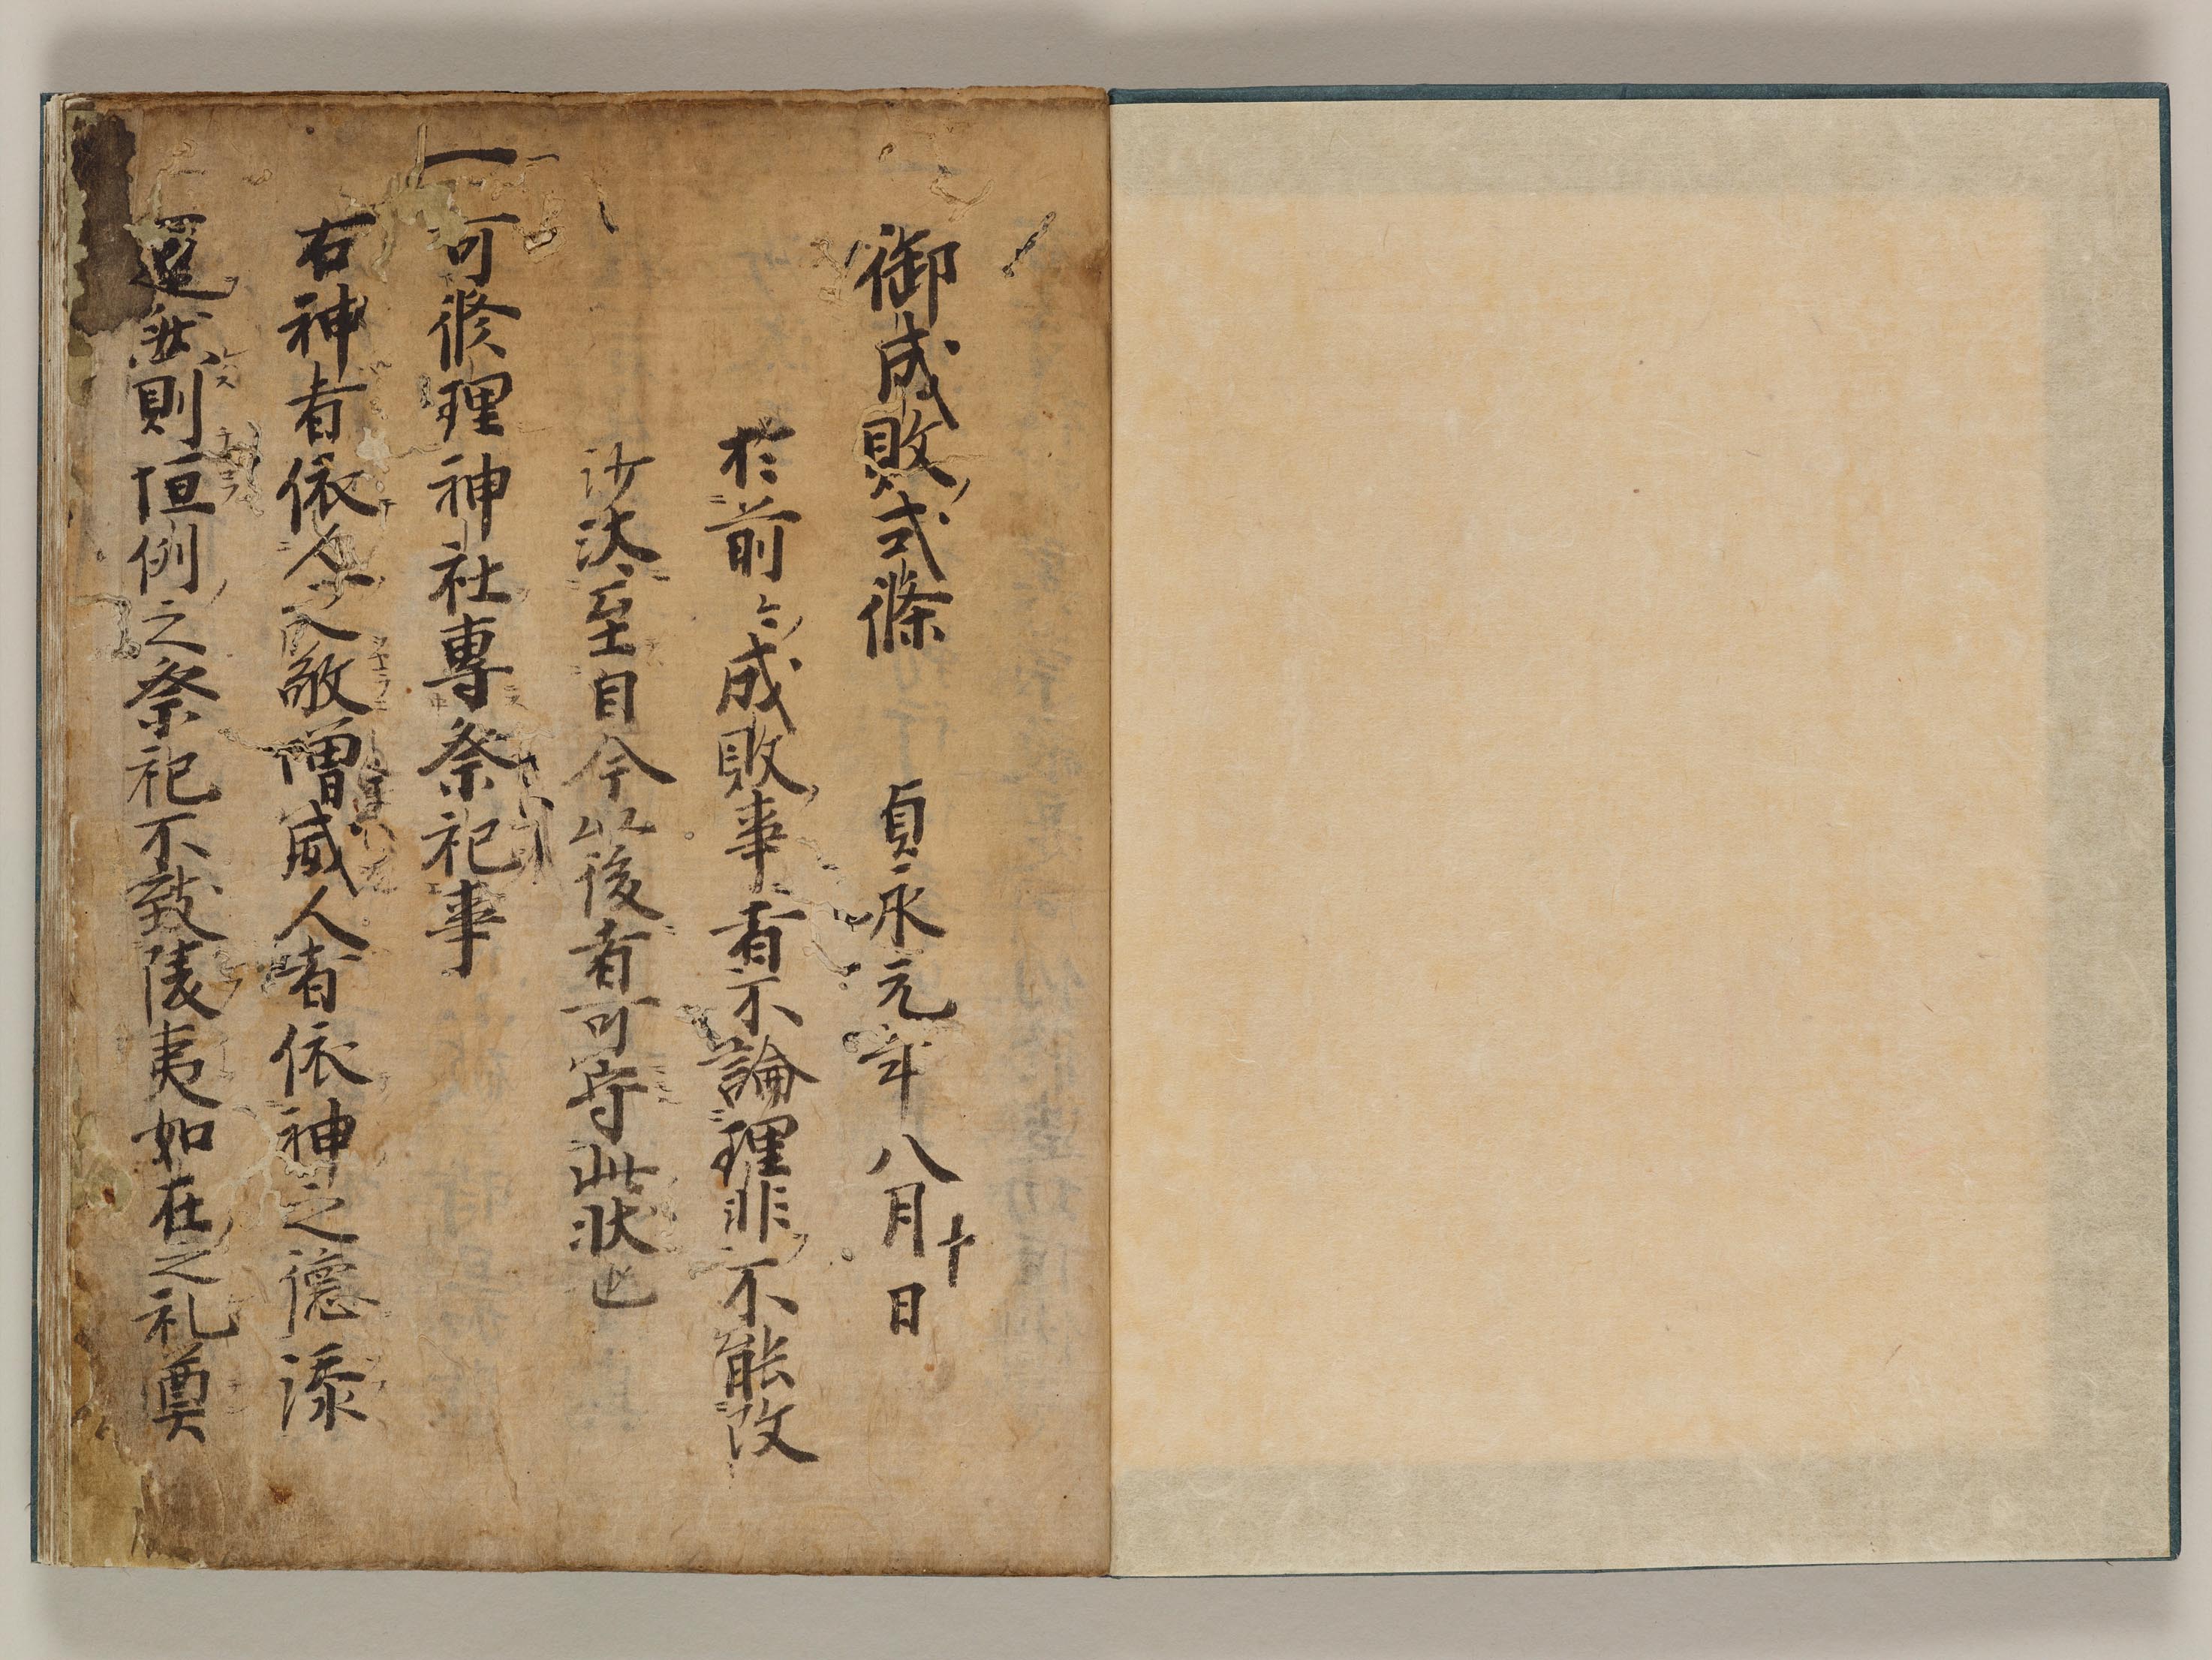 御成敗式條　貞永元年八月十日
於前々成敗事者不論理非不能改
沙汰至自今以後者可守此状也
一可修理神社専祭祀事
右神者依人之敬増威人者依神之徳添
運然則恒例之祭祀不致陵夷如在之礼奠